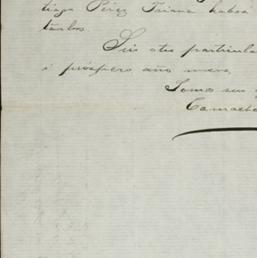 tiago Pérez Triana habrá
tanbos
Sis otis particula
i próspero año nuevo,
Somos sus
Camacho